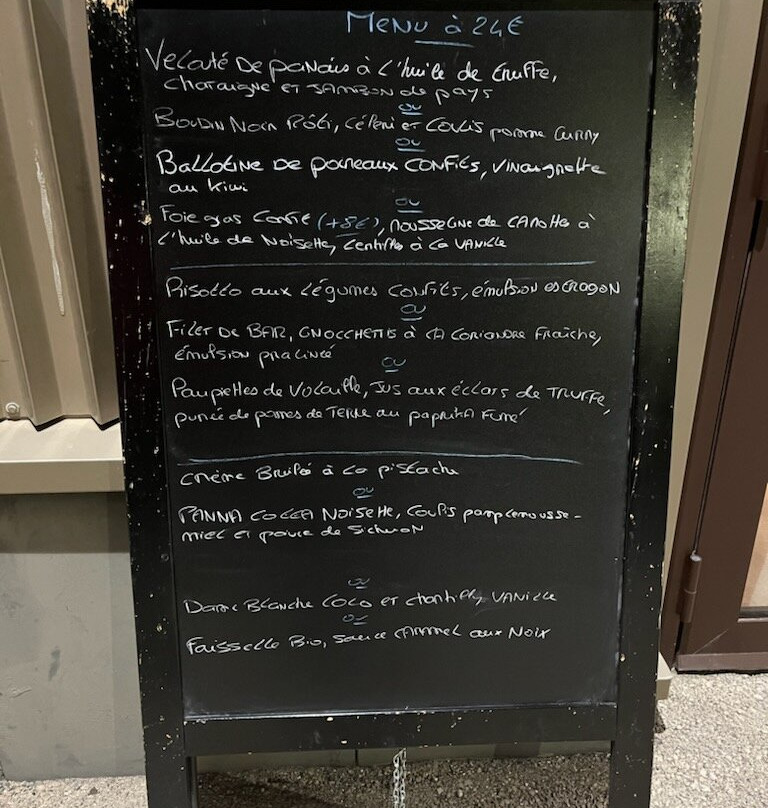 MENU à 24€
Velouté De panais à L'huile de truffe,
chataigne et JAMBON de pays
ou
Boudin Noir Rôti, Céleri et Coulis pomme Curry
ou
Ballotine De poireaux CONFITS, Vinaigrette
au kiwi
ou
Foie gras Confit (+8€), mousseline de CAROTTE à
L'huile de Noisette, Lentilles à la VANILLE
Risotto aux Légumes CONFITS, émulsion esTRAGON
ou
Filet De BAR, GNOCCHETTIS à LA CORIANDRE Fraîche,
émulsion pralinée
ou
Paupiettes de Volaille, Jus aux éclats de TRUFFE,
purée de pommes de TERRE au paprika Fumé
crème Brulée à la pistache
ou
PANNA COTTA NOISETTE, Coulis pamplemousse-
miel et poivre de SichuAN
ou
Dame Blanche COCO et chantilly VANILLE
ou
Faisselle Bio, sauce CARAMEL aux NOIX